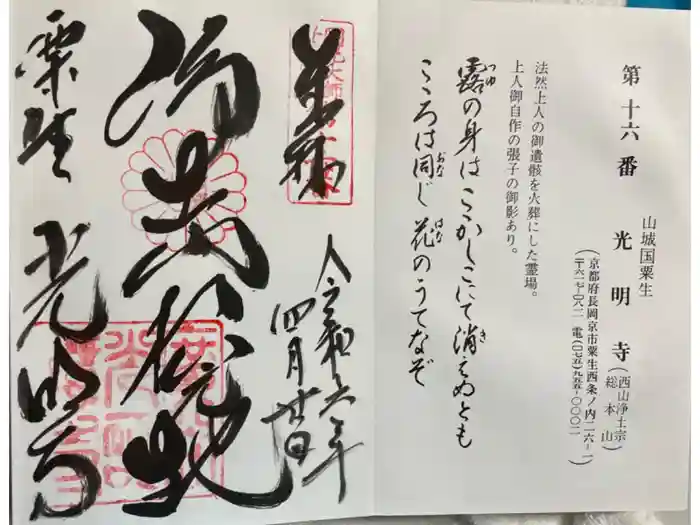 第十六番 光明寺(西山浄土宗総本山)
山城国粟生
(京都府長岡京市粟生西条ノ内二六-一
〒六一七-〇八一一 電(〇七五)九五五-〇〇〇二)
法然上人の御遺骸を火葬にした霊場。
上人御自作の張子の御影あり。
露の身はここかしこにて消えぬとも
つゆ
き
こころは同じ花のうてなぞ
おな
はな
奉拝
令和六年
四月廿日
粟生 光明寺